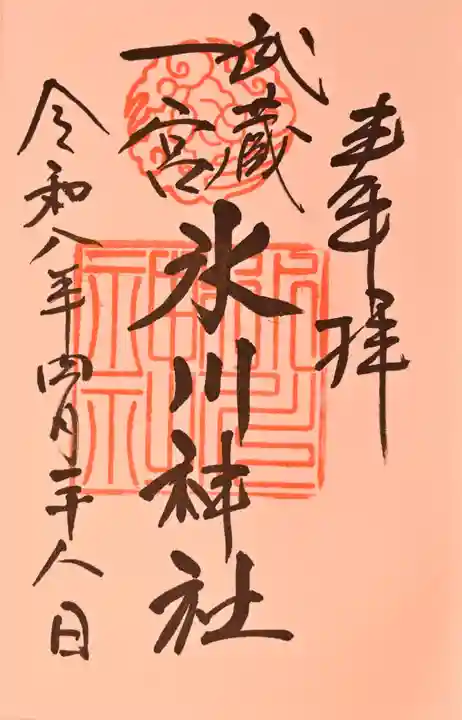 奉拝
武蔵
一宮
氷川神社
令和八年四月二十八日